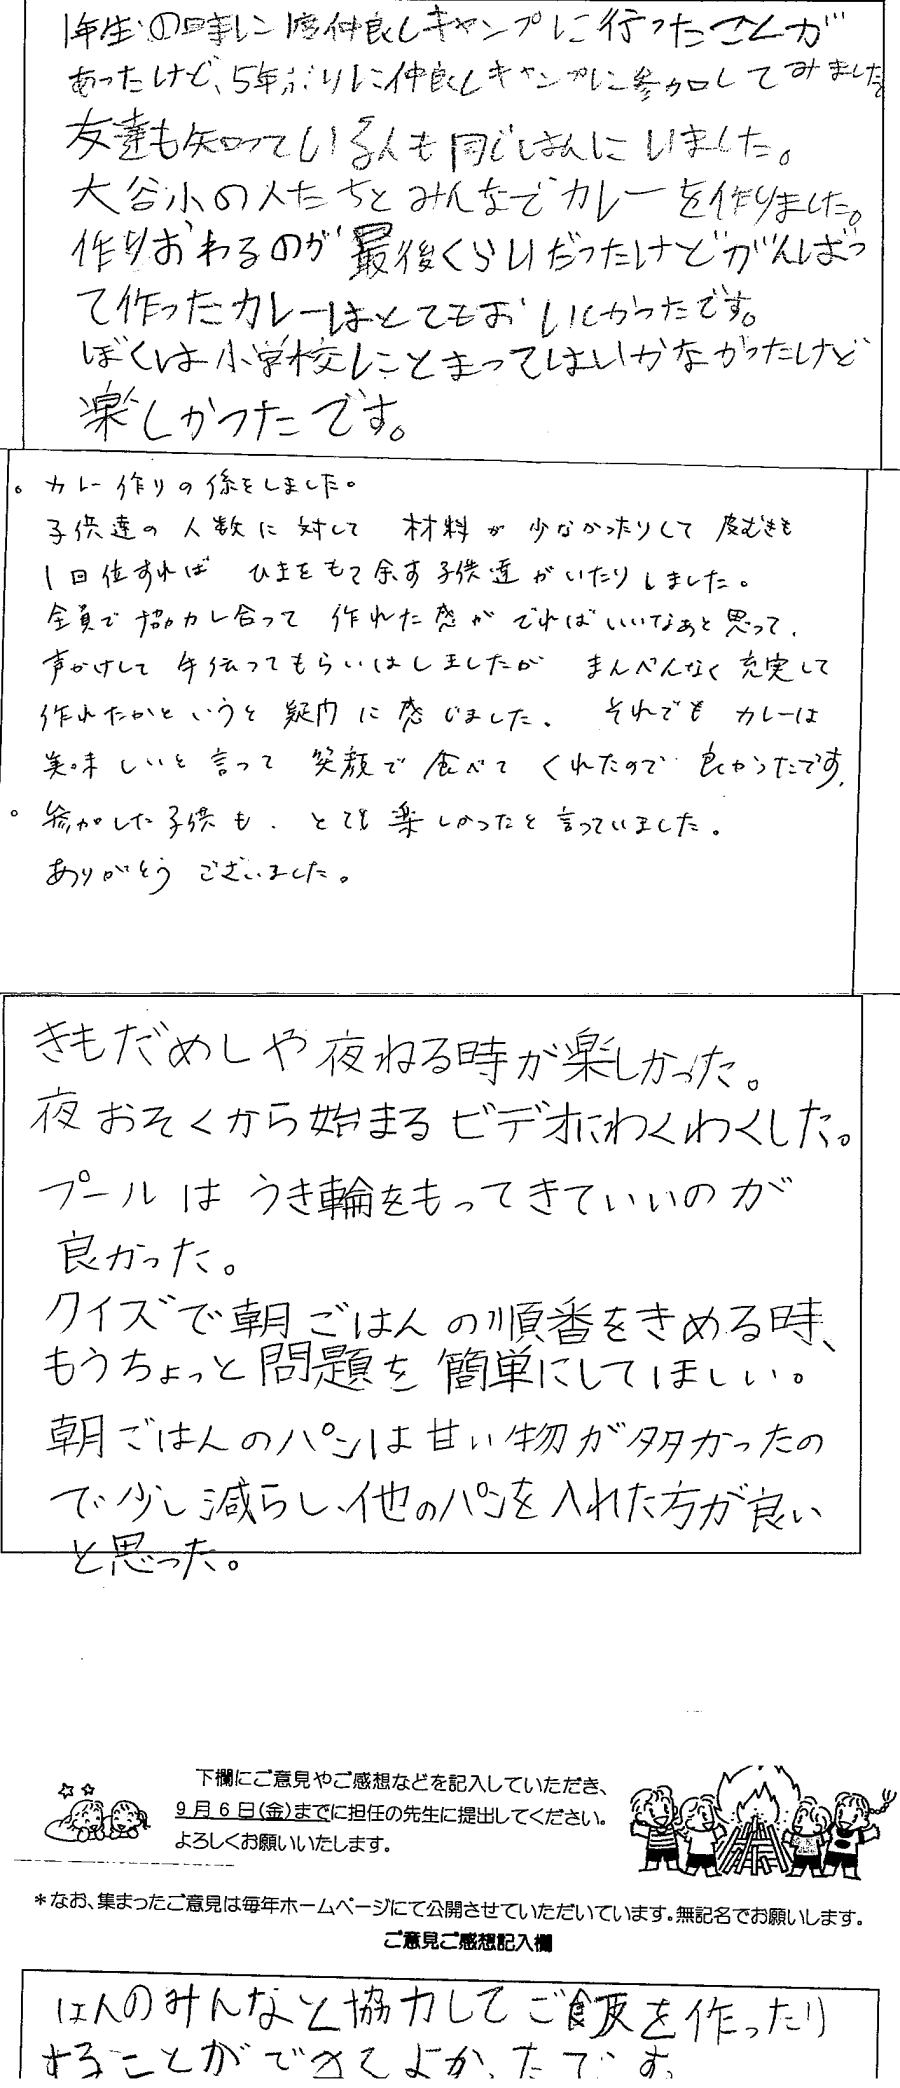 1年生の時に1度仲良しキャンプに行ったことが
あったけど、5年ぶりに仲良しキャンプに参加してみました
友達も知っている人も同じはんにいました。
大谷小の人たちとみんなでカレーを作りました。
作りおわるのが最後くらいだったけどがんばっ
て作ったカレーはとてもおいしかったです。
ぼくは小学校にとまってはいかなかったけど
楽しかったです。
。カレー作りの係をしました。
子供達の人数に対して 材料が少なかったりして 皮むきも
1回位すれば ひまをもて余す子供達がいたりしました。
全員で協力し合って 作れた感がでればいいなぁと思って、
声かけして手伝ってもらいはしましたが まんべんなく充実して
作れたかというと疑問に感じました。 それでもカレーは
美味しいと言って 笑顔で食べてくれたので良かったです。
。参加した子供も、とても楽しかったと言っていました。
ありがとうございました。
きもだめしや夜ねる時が楽しかった。
夜おそくから始まるビデオにわくわくした。
プールはうき輪をもってきていいのが
良かった。
クイズで朝ごはんの順番をきめる時、
もうちょっと問題を簡単にしてほしい。
朝ごはんのパンは甘い物が多かったの
で少し減らし、他のパンを入れた方が良い
と思った。
下欄にご意見やご感想などを記入していただき、
9月6日(金)までに担任の先生に提出してください。
よろしくお願いいたします。
*なお、集まったご意見は毎年ホームページにて公開させていただいています。無記名でお願いします。
ご意見ご感想記入欄
はんのみんなと協力してご飯を作ったり
することができてよかったです。